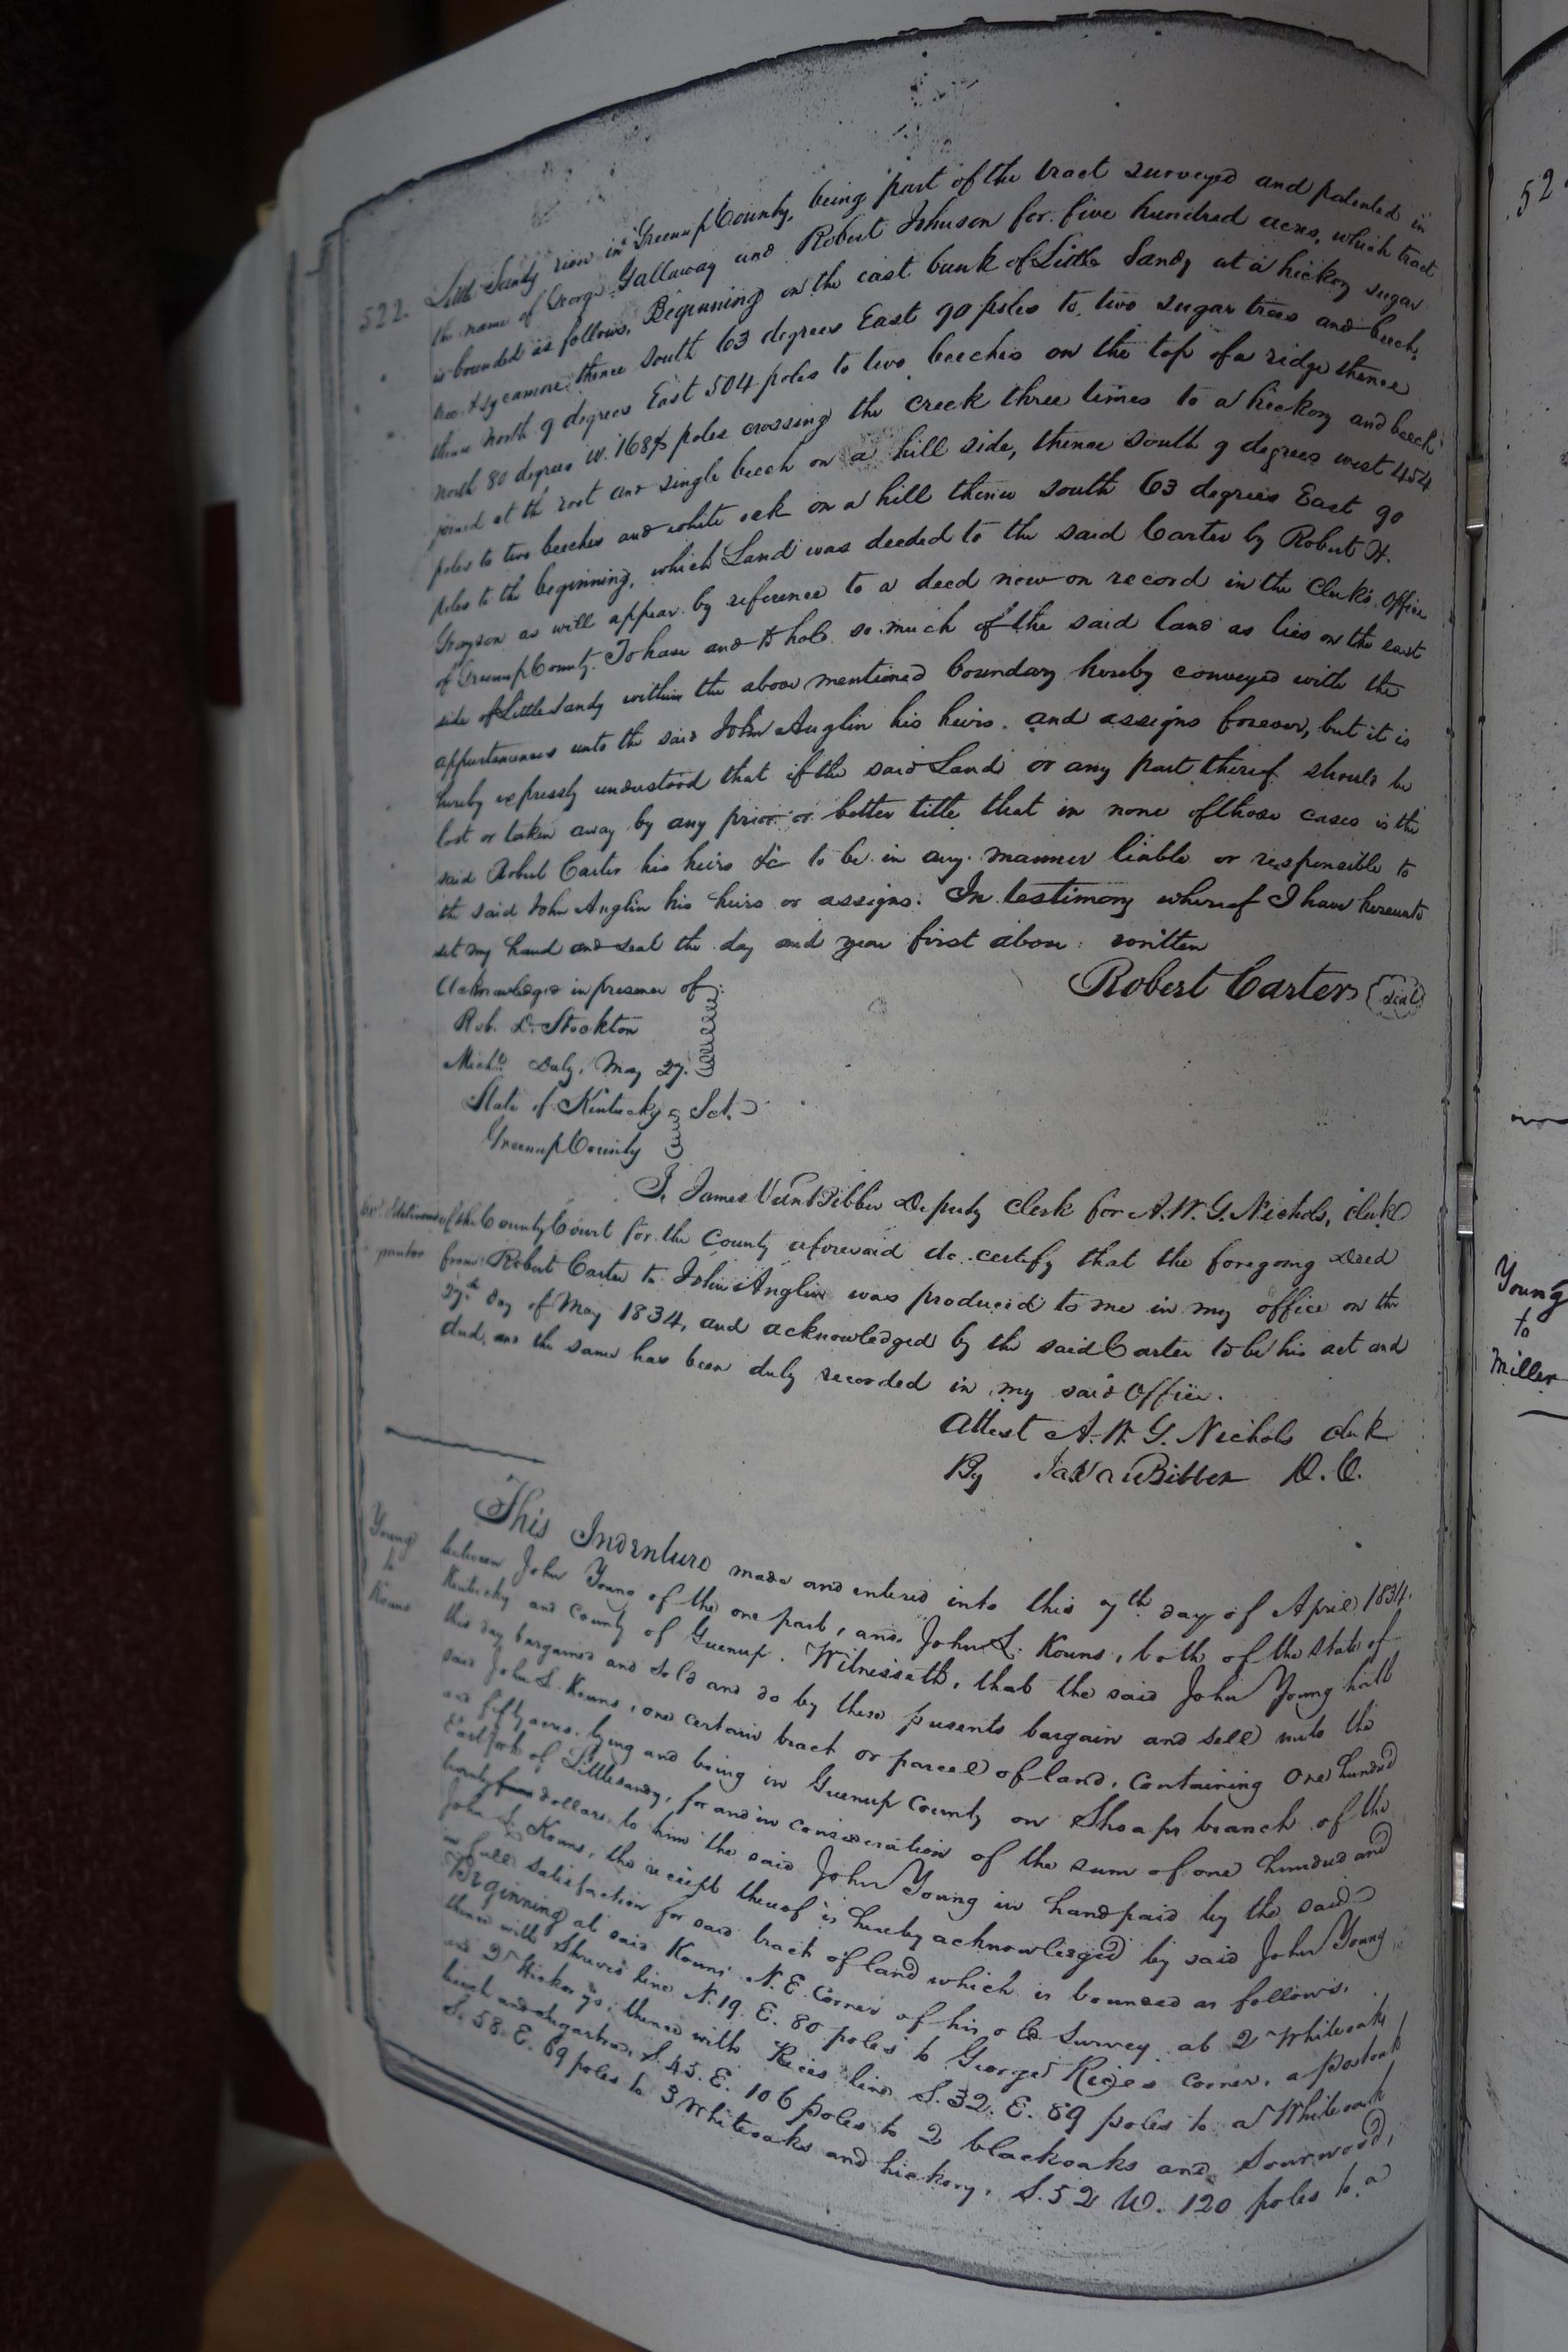 522.
Little Sandy river in Greenup County, being part of the tract surveyed and patented in
the name of George Gallaway and Robert Johnson for five hundred acres, which tract
is bounded as follows, Beginning on the east bank of Little Sandy at a hickory sugar
tree & sycamore, thence south 63 degrees East 90 poles to two sugar trees and beech,
thence North 9 degrees East 504 poles to two beeches on the top of a ridge thence
North 80 degrees W. 168 poles crossing the creek three times to a hickory and beech
joined at the root and single beech on a hill side, thence south 9 degrees west 454
poles to two beeches and white oak on a hill thence south 63 degrees East 90
poles to the beginning, which Land was deeded to the said Carter by Robert H.
Grayson as will appear by reference to a deed now on record in the Clerks Office
of Greenup County. To have and to hold so much of the said land as lies on the east
side of Little Sandy within the above mentioned boundary hereby conveyed with the
appurtenances unto the said John Anglin his heirs and assigns forever, but it is
hereby expressly understood that if the said Land or any part thereof should be
lost or taken away by any prior or better title that in none of those cases is the
said Robert Carter his heirs &c to be in any manner liable or responsible to
the said John Anglin his heirs or assigns. In testimony whereof I have hereunto
set my hand and seal the day and year first above written
Robert Carter (seal)
Acknowledged in presence of
Rob. D. Stockton
Michl. Duly, May 27.
State of Kentucky Sct.
Greenup County
I, James VanBibber Deputy clerk for A. W. G. Nichols, clerk
of the County Court for the County aforesaid do certify that the foregoing Deed
from Robert Carter to John Anglin was produced to me in my office on the
27th day of May 1834, and acknowledged by the said Carter to be his act and
deed, and the same has been duly recorded in my said Office.
Attest A. W. G. Nichols clerk
By Jas VanBibber D. C.
Young
to
Kouns
This Indenture made and entered into this 7th day of April 1834.
between John Young of the one part, and John S. Kouns, both of the State of
Kentucky and County of Greenup. Witnesseth, that the said John Young hath
this day bargained and sold and do by these presents bargain and sell unto the
said John S. Kouns, one certain tract or parcel of land, containing One hundred
and fifty acres lying and being in Greenup County on Shoaps branch of the
East fork of Littlesandy, for and in consideration of the sum of one hundred and
twenty dollars, to him the said John Young in hand paid by the said
John S. Kouns, the receipt thereof is hereby acknowledged by said John Young
in full satisfaction for said tract of land which is bounded as follows.
Beginning at said Kouns N. E. Corner of his old Survey at 2 Whiteoaks
thence with Shrives line N. 19. E. 80 poles to George Rices corner, a postoak
and 2 Hickorys, thence with Rices line S. 32. E. 89 poles to a Whiteoak
and sugartree, S. 45. E. 106 poles to 2 blackoaks and Sourwood,
S. 58. E. 69 poles to 3 Whiteoaks and hickory, S. 52 W. 120 poles to a
52
Young
to
Miller